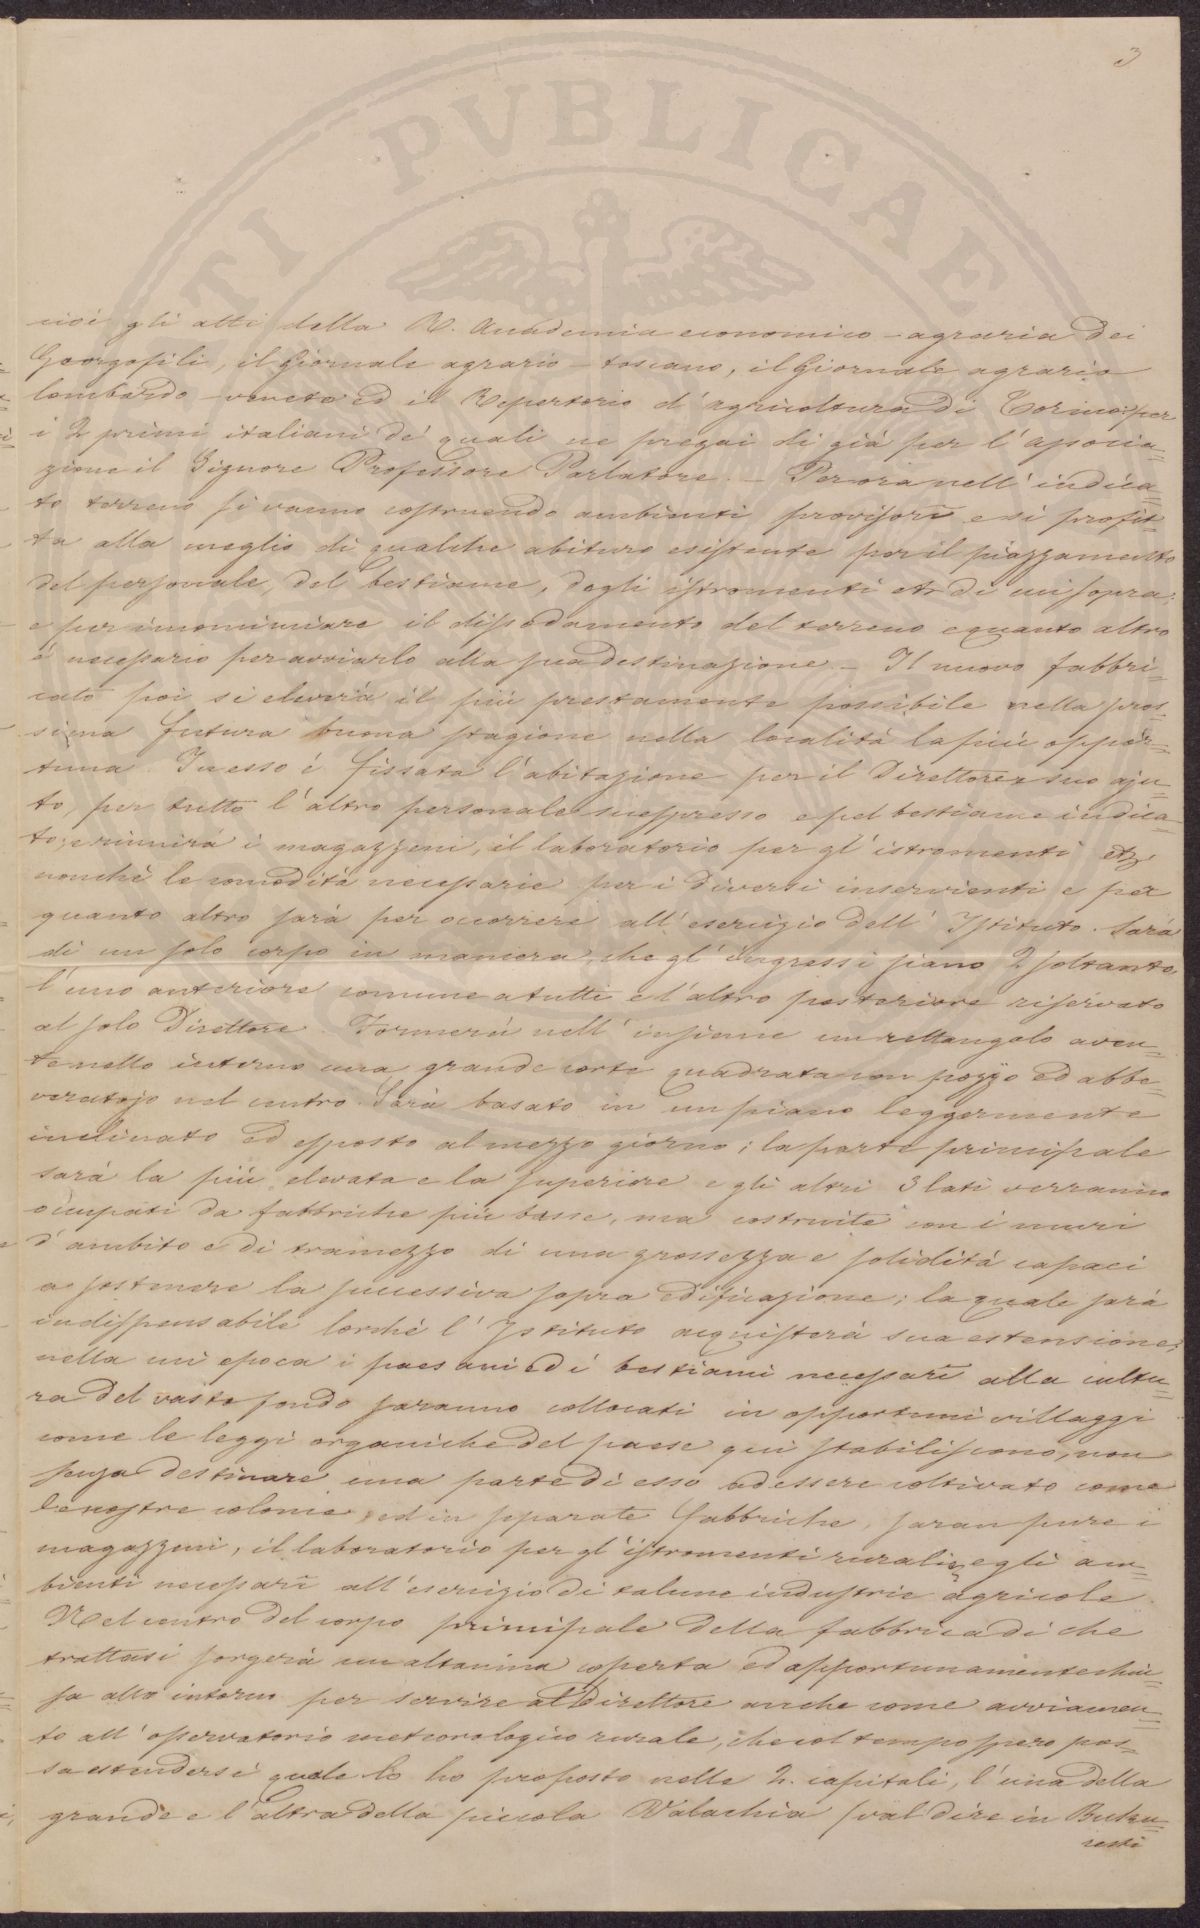 3
TI PVBLICAE
cioè gli atti della R. Accademia economico-agraria dei
Georgofili, il Giornale agrario-toscano, il Giornale agrario
lombardo-veneto ed il Repertorio d'agricoltura di Torino: per
i 2 primi italiani de' quali ne pregai di già per l'associa=
zione il Signore Professore Parlatore. – Per ora nell'indica=
to terreno si vanno costruendo ambienti provisorî e si profit=
ta alla meglio di qualche abituro esistente per il piazzamento
del personale, del bestiame, degli istromenti etc di cui sopra:
e per incominciare il dissodamento del terreno e quanto altro
è necessario per avviarlo alla sua destinazione. – Il nuovo fabbri=
cato poi si eleverà il più prestamente possibile nella pros=
sima futura buona stagione nella località la più oppor=
tuna. In esso è fissata l'abitazione per il Direttore e suo aju=
to, per tutto l'altro personale suespresso e pel bestiame indica=
to; e riunirà i magazzeni, il laboratorio per gl'istromenti etc
nonchè le comodità necessarie per i diversi inservienti e per
quanto altro sarà per ocorrere all'esercizio dell'Istituto. Sarà
di un solo corpo in maniera, che gl'ingressi siano 2 soltanto,
l'uno anteriore comune a tutti e l'altro posteriore riservato
al solo Direttore. Formerà nell'insieme un rettangolo aven=
te nello interno una grande corte quadrata con pozzo ed abbe=
veratojo nel centro. Sarà basato in un piano leggermente
inclinato ed esposto al mezzo giorno; la parte principale
sarà la più elevata e la superiore e gli altri 3 lati verranno
occupati da fabbriche più basse, ma costruite con i muri
d'ambito e di tramezzo di una grossezza e solidità capaci
a sostenere la successiva sopra edificazione; la quale sarà
indispensabile lorchè l'Istituto acquisterà sua estensione;
nella cui epoca i paesani ed i bestiami necessarî alla cultu=
ra del vasto fondo saranno collocati in opportuni villaggi
come le leggi organiche del paese qui stabiliscono, non
senza destinare una parte di esso ad essere coltivato come
le nostre colonie, ed in separate fabbriche, saran pure i
magazzeni, il laboratorio per gl'istromenti rurali, e gli am=
bienti necessarî all'esercizio di talune industrie agricole.
Nel centro del corpo principale della fabbrica di che
trattasi sorgerà un altanina coperta ed opportunamente chiu=
sa allo intorno per servire al Direttore anche come avviamen=
to all'osservatorio meteorologico rurale, che col tempo spero pos=
sa estendersi quale lo ho proposto nelle 2. capitali, l'una della
grande e l'altra della piccola Valachia, val dire in Buku=
resti